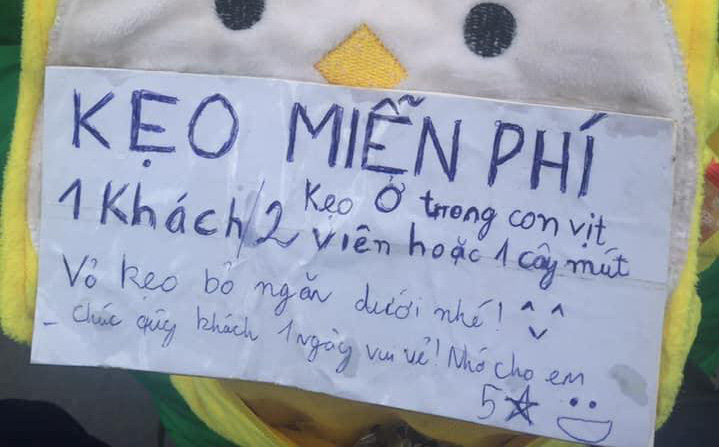 KẸO MIỄN PHÍ
Kẹo Ở trong con vịt
1 Khách/2 viên hoặc 1 cây mút
Vỏ kẹo bỏ ngăn dưới nhé! ^v^
- Chúc quý khách 1 ngày vui vẻ! Nhớ cho em
5☆ :)